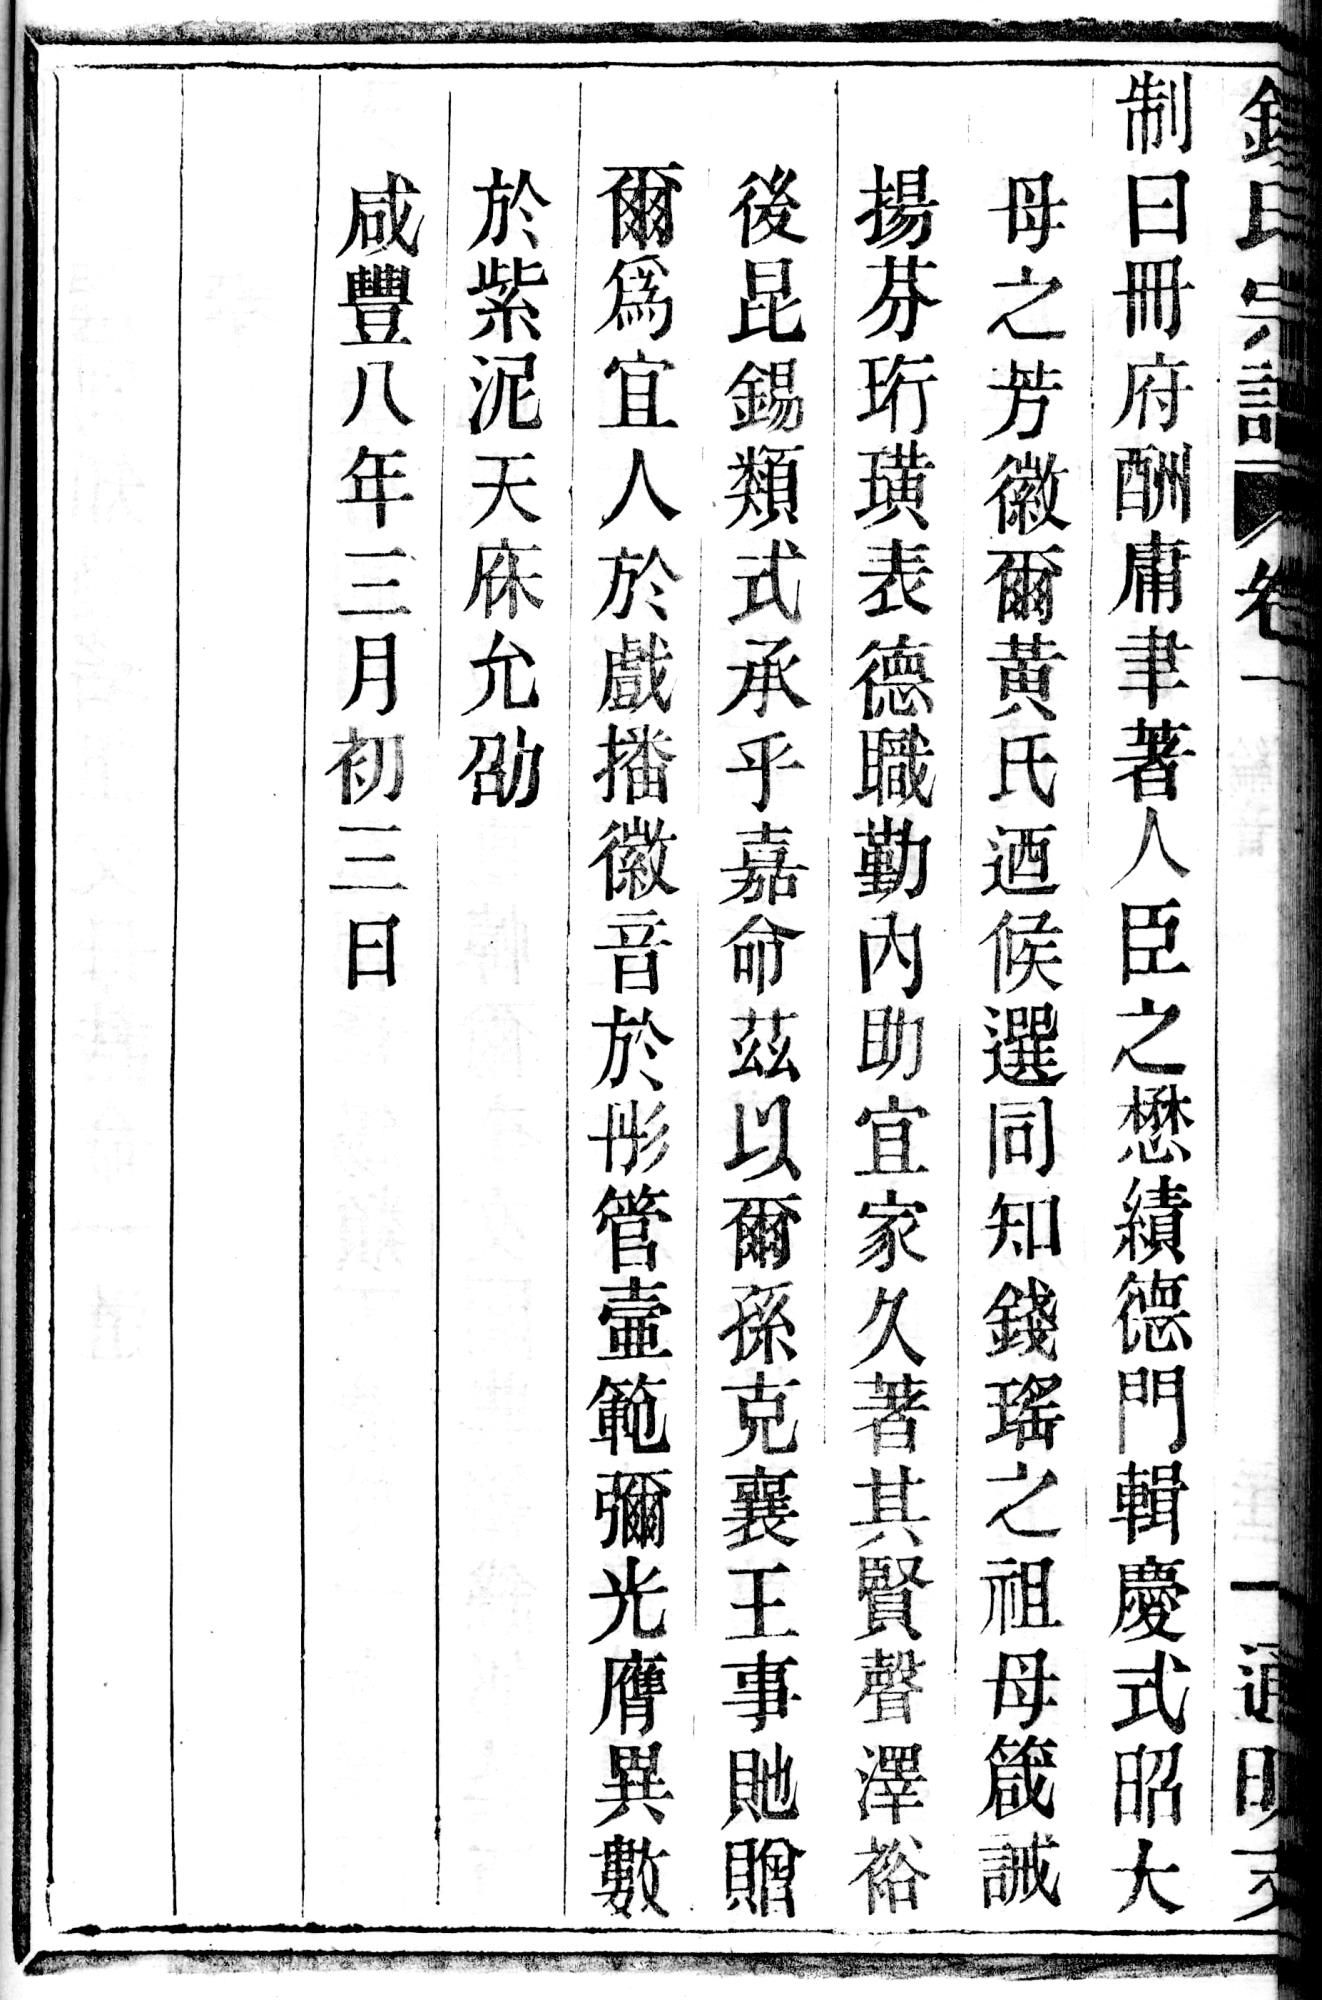 錢氏宗譜 卷一 一 通明支
制曰冊府酬庸聿著人臣之懋績德門輯慶式昭大
母之芳徽爾黃氏迺候選同知錢瑤之祖母箴誡
揚芬珩璜表德職勤內助宜家久著其賢聲澤裕
後昆錫類式承乎嘉命茲以爾孫克襄王事貤贈
爾爲宜人於戲播徽音於彤管壼範彌光膺異數
於紫泥天庥允劭
咸豐八年三月初三日